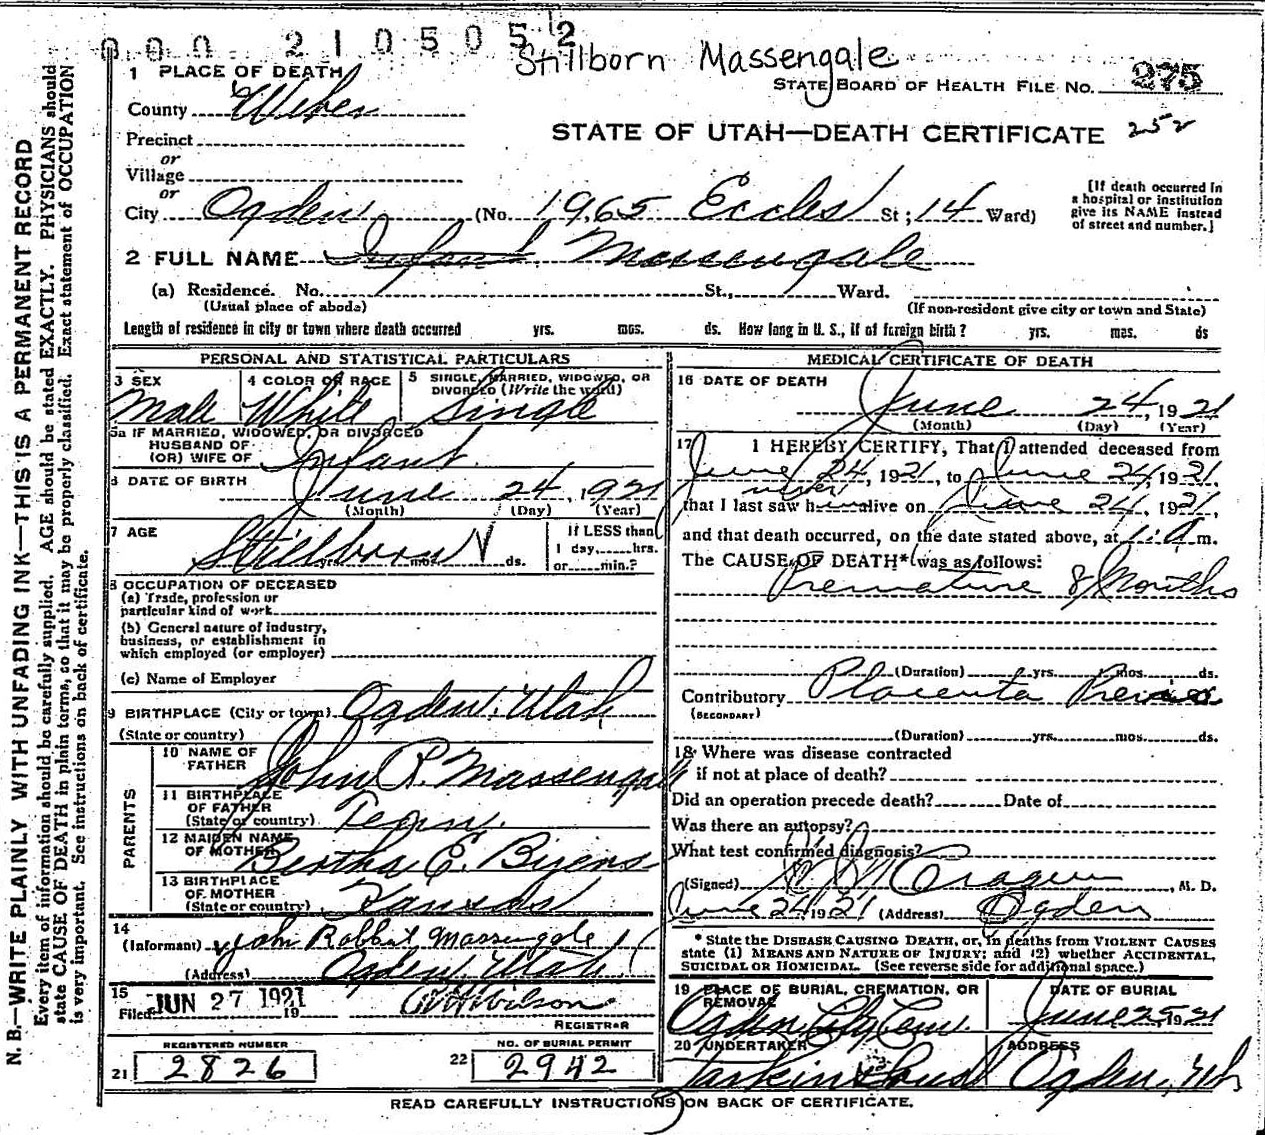 000 2105052
Stillborn Massengale
1 PLACE OF DEATH
STATE BOARD OF HEALTH FILE NO. 275
County Weber
STATE OF UTAH—DEATH CERTIFICATE 252
Precinct
or
Village
or
City Ogden (No. 1965 Eccles St; 14 Ward)
[If death occurred in
a hospital or institution
give its NAME instead
of street and number.]
2 FULL NAME Infant Massengale
(a) Residence. No. St., Ward.
(Usual place of abode) (If non-resident give city or town and State)
Length of residence in city or town where death occurred yrs. mos. ds. How long in U. S., if of foreign birth? yrs. mos. ds
PERSONAL AND STATISTICAL PARTICULARS
3 SEX
Male
4 COLOR OR RACE
White
5 SINGLE, MARRIED, WIDOWED, OR
DIVORCED (Write the word)
Single
5a IF MARRIED, WIDOWED, OR DIVORCED
HUSBAND OF
(OR) WIFE OF Infant
6 DATE OF BIRTH June 24, 1921
(Month) (Day) (Year)
7 AGE
Stillborn
yrs. mos. ds.
If LESS than
1 day, hrs.
or min.?
8 OCCUPATION OF DECEASED
(a) Trade, profession or
particular kind of work
(b) General nature of industry,
business, or establishment in
which employed (or employer)
(c) Name of Employer
9 BIRTHPLACE (City or town) Ogden, Utah
(State or country)
PARENTS
10 NAME OF
FATHER John R. Massengale
11 BIRTHPLACE
OF FATHER
(State or country) Tenn.
12 MAIDEN NAME
OF MOTHER Bertha E.
13 BIRTHPLACE
OF MOTHER
(State or country) Kansas
14
(Informant) John Massengale
(Address) Ogden, Utah
15
Filed JUN 27 1921 19 Wilson
REGISTRAR
REGISTERED NUMBER
21 2826
NO. OF BURIAL PERMIT
22 2942
MEDICAL CERTIFICATE OF DEATH
16 DATE OF DEATH
June 24, 1921
(Month) (Day) (Year)
17 I HEREBY CERTIFY, That I attended deceased from
June 24, 1921, to June 24, 1921,
never
that I last saw h alive on June 24, 1921,
and that death occurred, on the date stated above, at 1: A m.
The CAUSE OF DEATH* was as follows:
Premature 8 Months
(Duration) yrs. mos. ds.
Contributory Placenta Previa
(SECONDARY)
(Duration) yrs. mos. ds.
18 Where was disease contracted
if not at place of death?
Did an operation precede death? Date of
Was there an autopsy?
What test confirmed diagnosis?
(Signed) , M. D.
June 24, 1921 (Address) Ogden
* State the DISEASE CAUSING DEATH, or, in deaths from VIOLENT CAUSES
state (1) MEANS AND NATURE OF INJURY; and (2) whether ACCIDENTAL,
SUICIDAL OR HOMICIDAL. (See reverse side for additional space.)
19 PLACE OF BURIAL, CREMATION, OR
REMOVAL
Ogden City Cem.
DATE OF BURIAL
June 25, 1921
20 UNDERTAKER
Larkin & Sons
ADDRESS
Ogden, Utah
READ CAREFULLY INSTRUCTIONS ON BACK OF CERTIFICATE.
N. B.—WRITE PLAINLY WITH UNFADING INK—THIS IS A PERMANENT RECORD
Every item of information should be carefully supplied. AGE should be stated EXACTLY. PHYSICIANS should
state CAUSE OF DEATH in plain terms, so that it may be properly classified. Exact statement of OCCUPATION
is very important. See instructions on back of certificate.